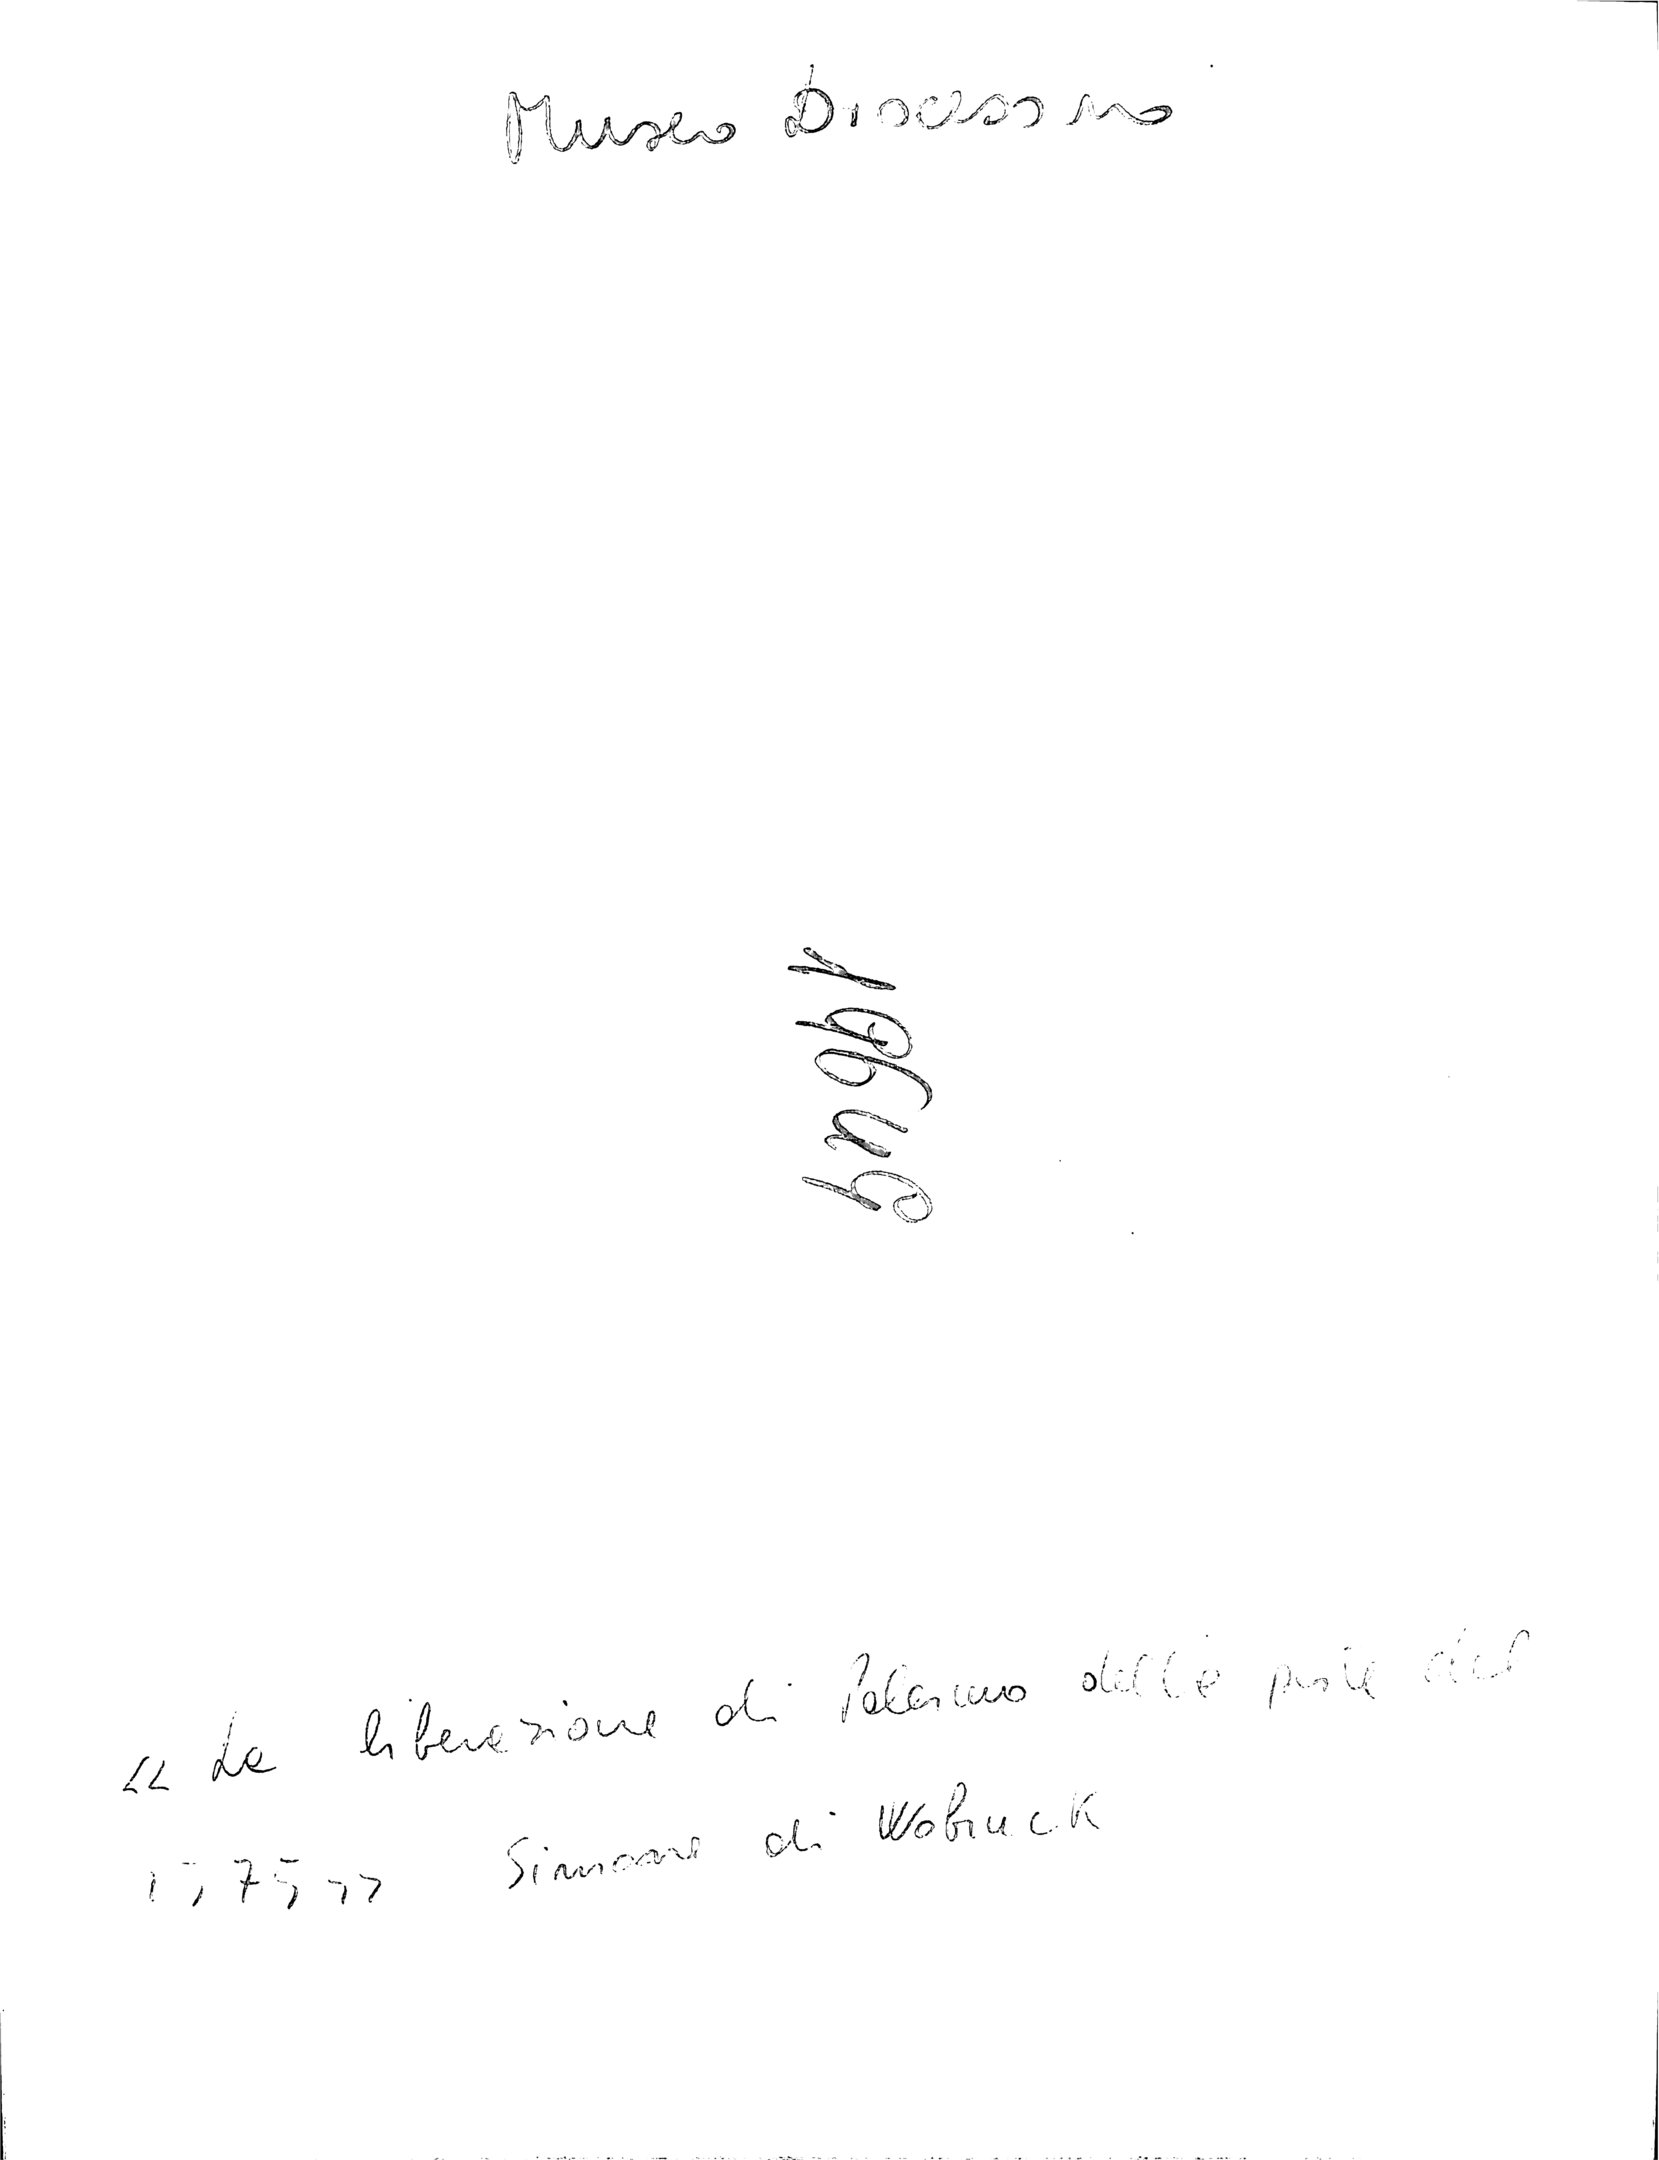 Museo Diocesano
“ La liberazione di Palermo dalla peste del
1575 ” Simone di Wobruck